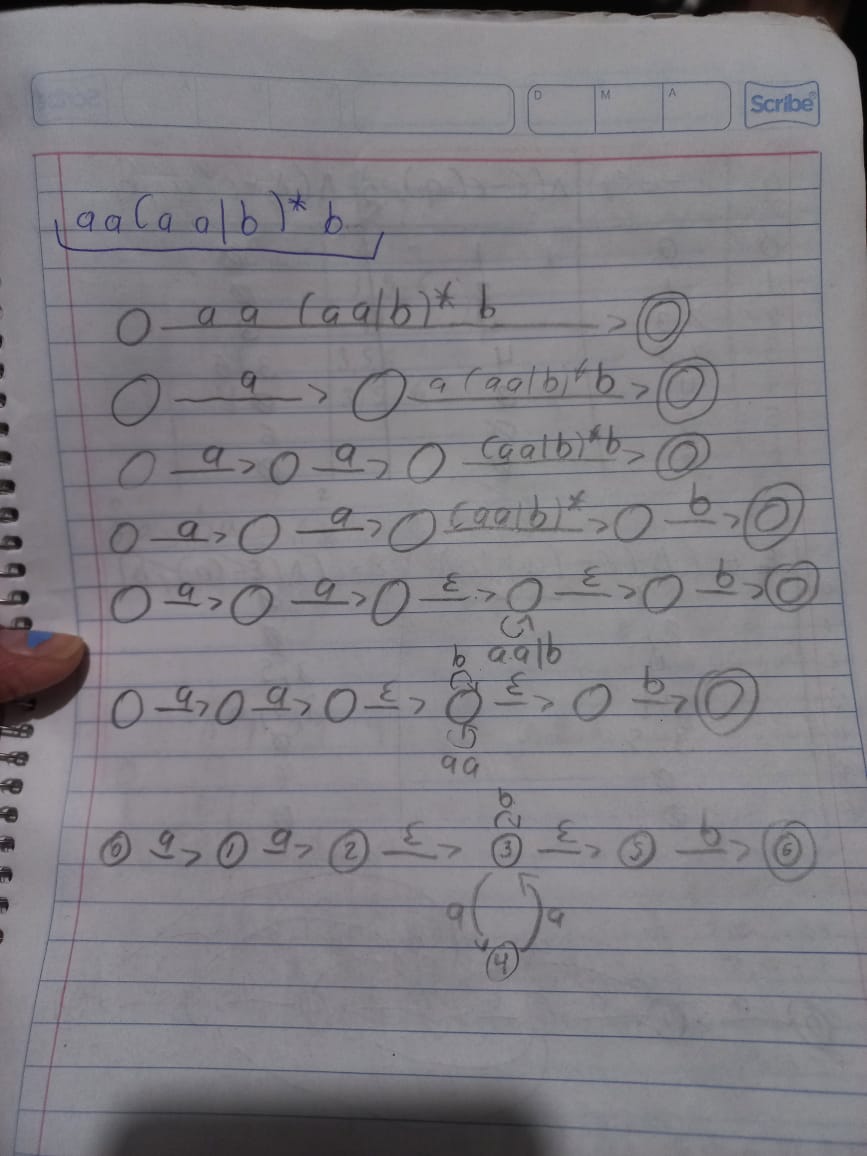 D M A Scribe
aa(aa|b)* b
aa (aa|b)* b
a a(aa|b)*b
a a (aa|b)*b
a a (aa|b)* b
a a ε ε b
aa|b
b
a a ε ε b
aa
b
0 a 1 a 2 ε 3 ε 5 b 6
a a
4